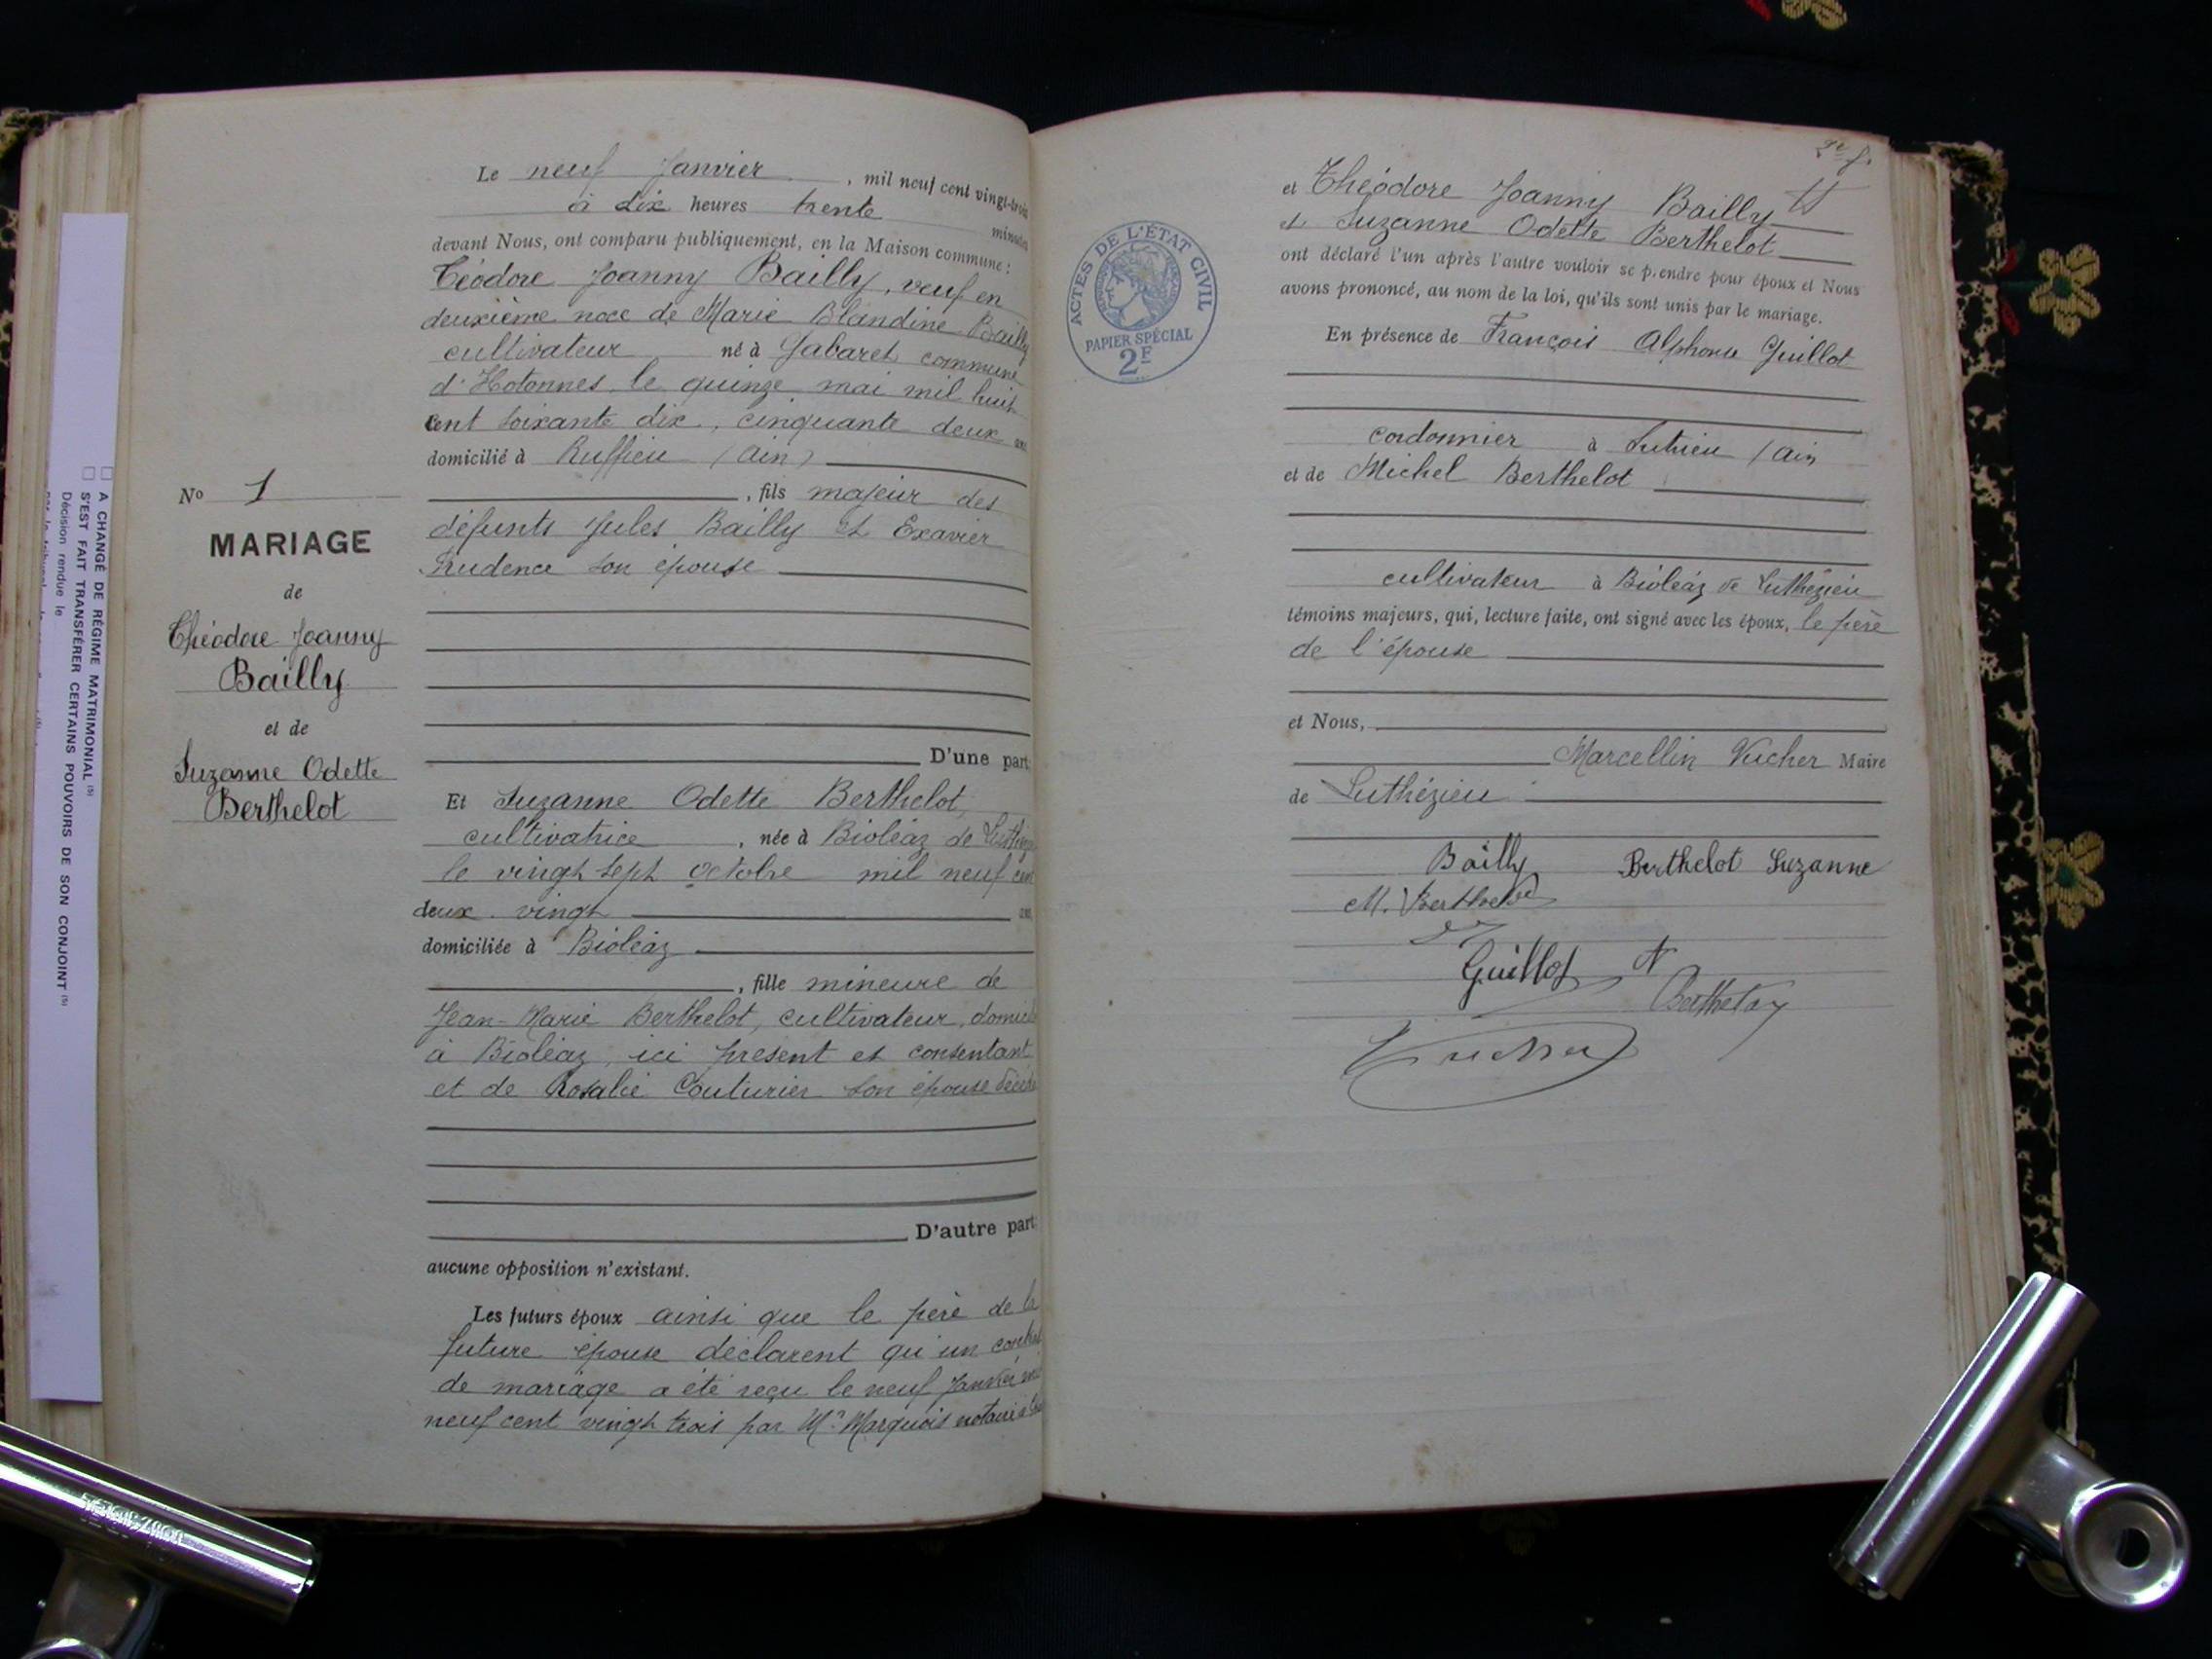 Le neuf Janvier, mil neuf cent vingt-trois
à dix heures trente minutes
devant Nous, ont comparu publiquement, en la Maison commune :
Téodore Joanny Bailly, veuf en
deuxième noce de Marie Blandine Bailly
cultivateur né à Jabaret commune
d'Hotonnes le quinze mai mil huit
cent soixante dix, cinquante deux ans
domicilié à Ruffieu (Ain)
, fils majeur des
défunts Jules Bailly et Exavier
Prudence son épouse
D'une part
Et Suzanne Odette Berthelot,
cultivatrice, née à Bioléaz de
le vingt sept octobre mil neuf cent
deux. vingt ans
domiciliée à Bioléaz
, fille mineure de
Jean-Marie Berthelot, cultivateur,
à Bioléaz, ici présent et consentant
et de Rosalie Couturier son épouse
D'autre part
aucune opposition n'existant.
Les futurs époux ainsi que le père de la
future épouse déclarent qu'un
de mariage a été reçu le neuf Janvier mil
neuf cent vingt trois par Me Marquois notaire à
No 1
MARIAGE
de
Théodore Joanny
Bailly
et de
Suzanne Odette
Berthelot
A CHANGÉ DE RÉGIME MATRIMONIAL (5)
S'EST FAIT TRANSFÉRER CERTAINS POUVOIRS DE SON CONJOINT (5)
Décision rendue le
et Théodore Joanny Bailly
et Suzanne Odette Berthelot
ont déclaré l'un après l'autre vouloir se prendre pour époux et Nous
avons prononcé, au nom de la loi, qu'ils sont unis par le mariage.
En présence de François Alphonse Guillot
cordonnier à Sutrieu (Ain
et de Michel Berthelot
cultivateur à Bioléaz de Luthézieu
témoins majeurs, qui, lecture faite, ont signé avec les époux, le père
de l'épouse
et Nous,
Marcellin Vucher Maire
de Luthézieu
Bailly Berthelot Suzanne
M. Berthelot
Guillot
Vucher
ACTES DE L'ÉTAT CIVIL
PAPIER SPÉCIAL
2F